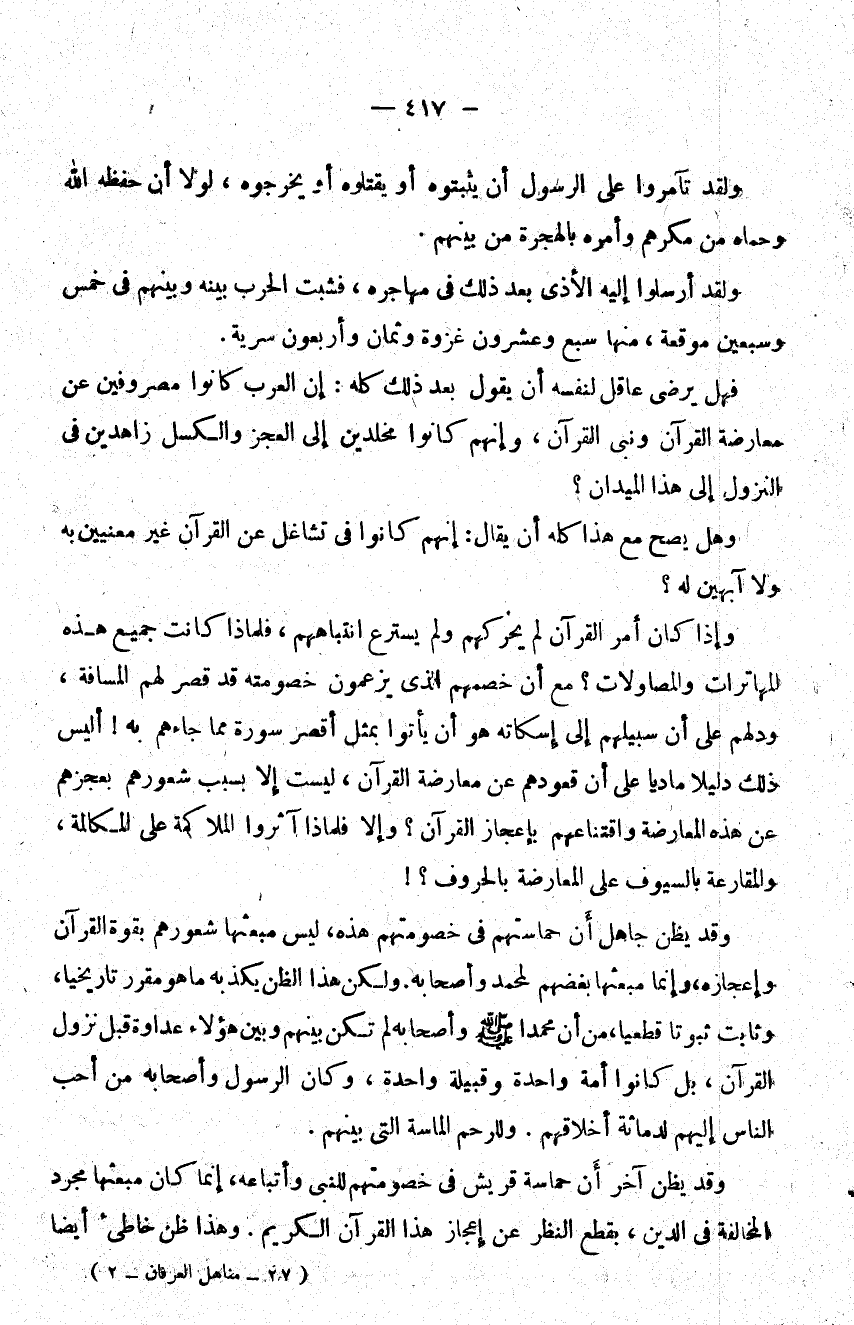 — ٤١٧ —
ولقد تآمروا على الرسول أن يثبتوه أو يقتلوه أو يخرجوه ، لولا أن حفظه الله
وحماه من مكرهم وأمره بالهجرة من بينهم .
ولقد أرسلوا إليه الأذى بعد ذلك فى مهاجره ، فشبت الحرب بينه وبينهم فى خمس
وسبعين موقعة ، منها سبع وعشرون غزوة وثمان وأربعون سرية .
فهل يرضى عاقل لنفسه أن يقول بعد ذلك كله : إن العرب كانوا مصروفين عن
معارضة القرآن ونبى القرآن ، وإنهم كانوا مخلدين إلى العجز والكسل زاهدين فى
النزول إلى هذا الميدان ؟
وهل يصح مع هذا كله أن يقال : إنهم كانوا فى تشاغل عن القرآن غير معنيين به
ولا آبهين له ؟
وإذا كان أمر القرآن لم يحركهم ولم يسترع انتباههم ، فلماذا كانت جميع هذه
المهاترات والمصاولات ؟ مع أن خصمهم الذى يزعمون خصومته قد قصر لهم المسافة ،
ودلهم على أن سبيلهم إلى إسكاته هو أن يأتوا بمثل أقصر سورة مما جاءهم به ! أليس
ذلك دليلا ماديا على أن قعودهم عن معارضة القرآن ، ليست إلا بسبب شعورهم بعجزهم
عن هذه المعارضة واقتناعهم بإعجاز القرآن ؟ وإلا فلماذا آثروا الملاكمة على المكالمة ،
والمقارعة بالسيوف على المعارضة بالحروف ؟ !
وقد يظن جاهل أن حماستهم فى خصومتهم هذه، ليس مبعثها شعورهم بقوة القرآن
وإعجازه، وإنما مبعثها بغضهم لمحمد وأصحابه. ولكن هذا الظن يكذبه ما هو مقرر تاريخيا،
وثابت ثبوتا قطعيا، من أن محمدا ﷺ وأصحابه لم تكن بينهم وبين هؤلاء عداوة قبل نزول
القرآن ، بل كانوا أمة واحدة وقبيلة واحدة ، وكان الرسول وأصحابه من أحب
الناس إليهم لدماثة أخلاقهم . وللرحم الماسة التى بينهم .
وقد يظن آخر أن حماسة قريش فى خصومتهم للنبى وأتباعه، إنما كان مبعثها مجرد
المخالفة فى الدين ، بقطع النظر عن إعجاز هذا القرآن الكريم . وهذا ظن خاطئ أيضا
( ٢٧ – مناهل العرفان – ٢ )